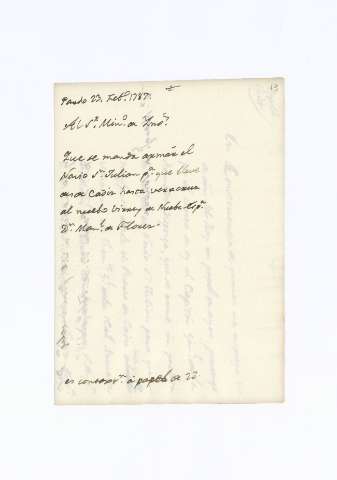 13
Pardo 23. Feb.o 1787.
Al S.r Min.o de Ind.s
Que se manda armar el
Navio S.n Julian p.a que lleve
desde Cadiz hasta veracruz
al nuebo Virrey de Nueba Esp.a
D.n Man.l de Flores
es contestac.n á papel de 22